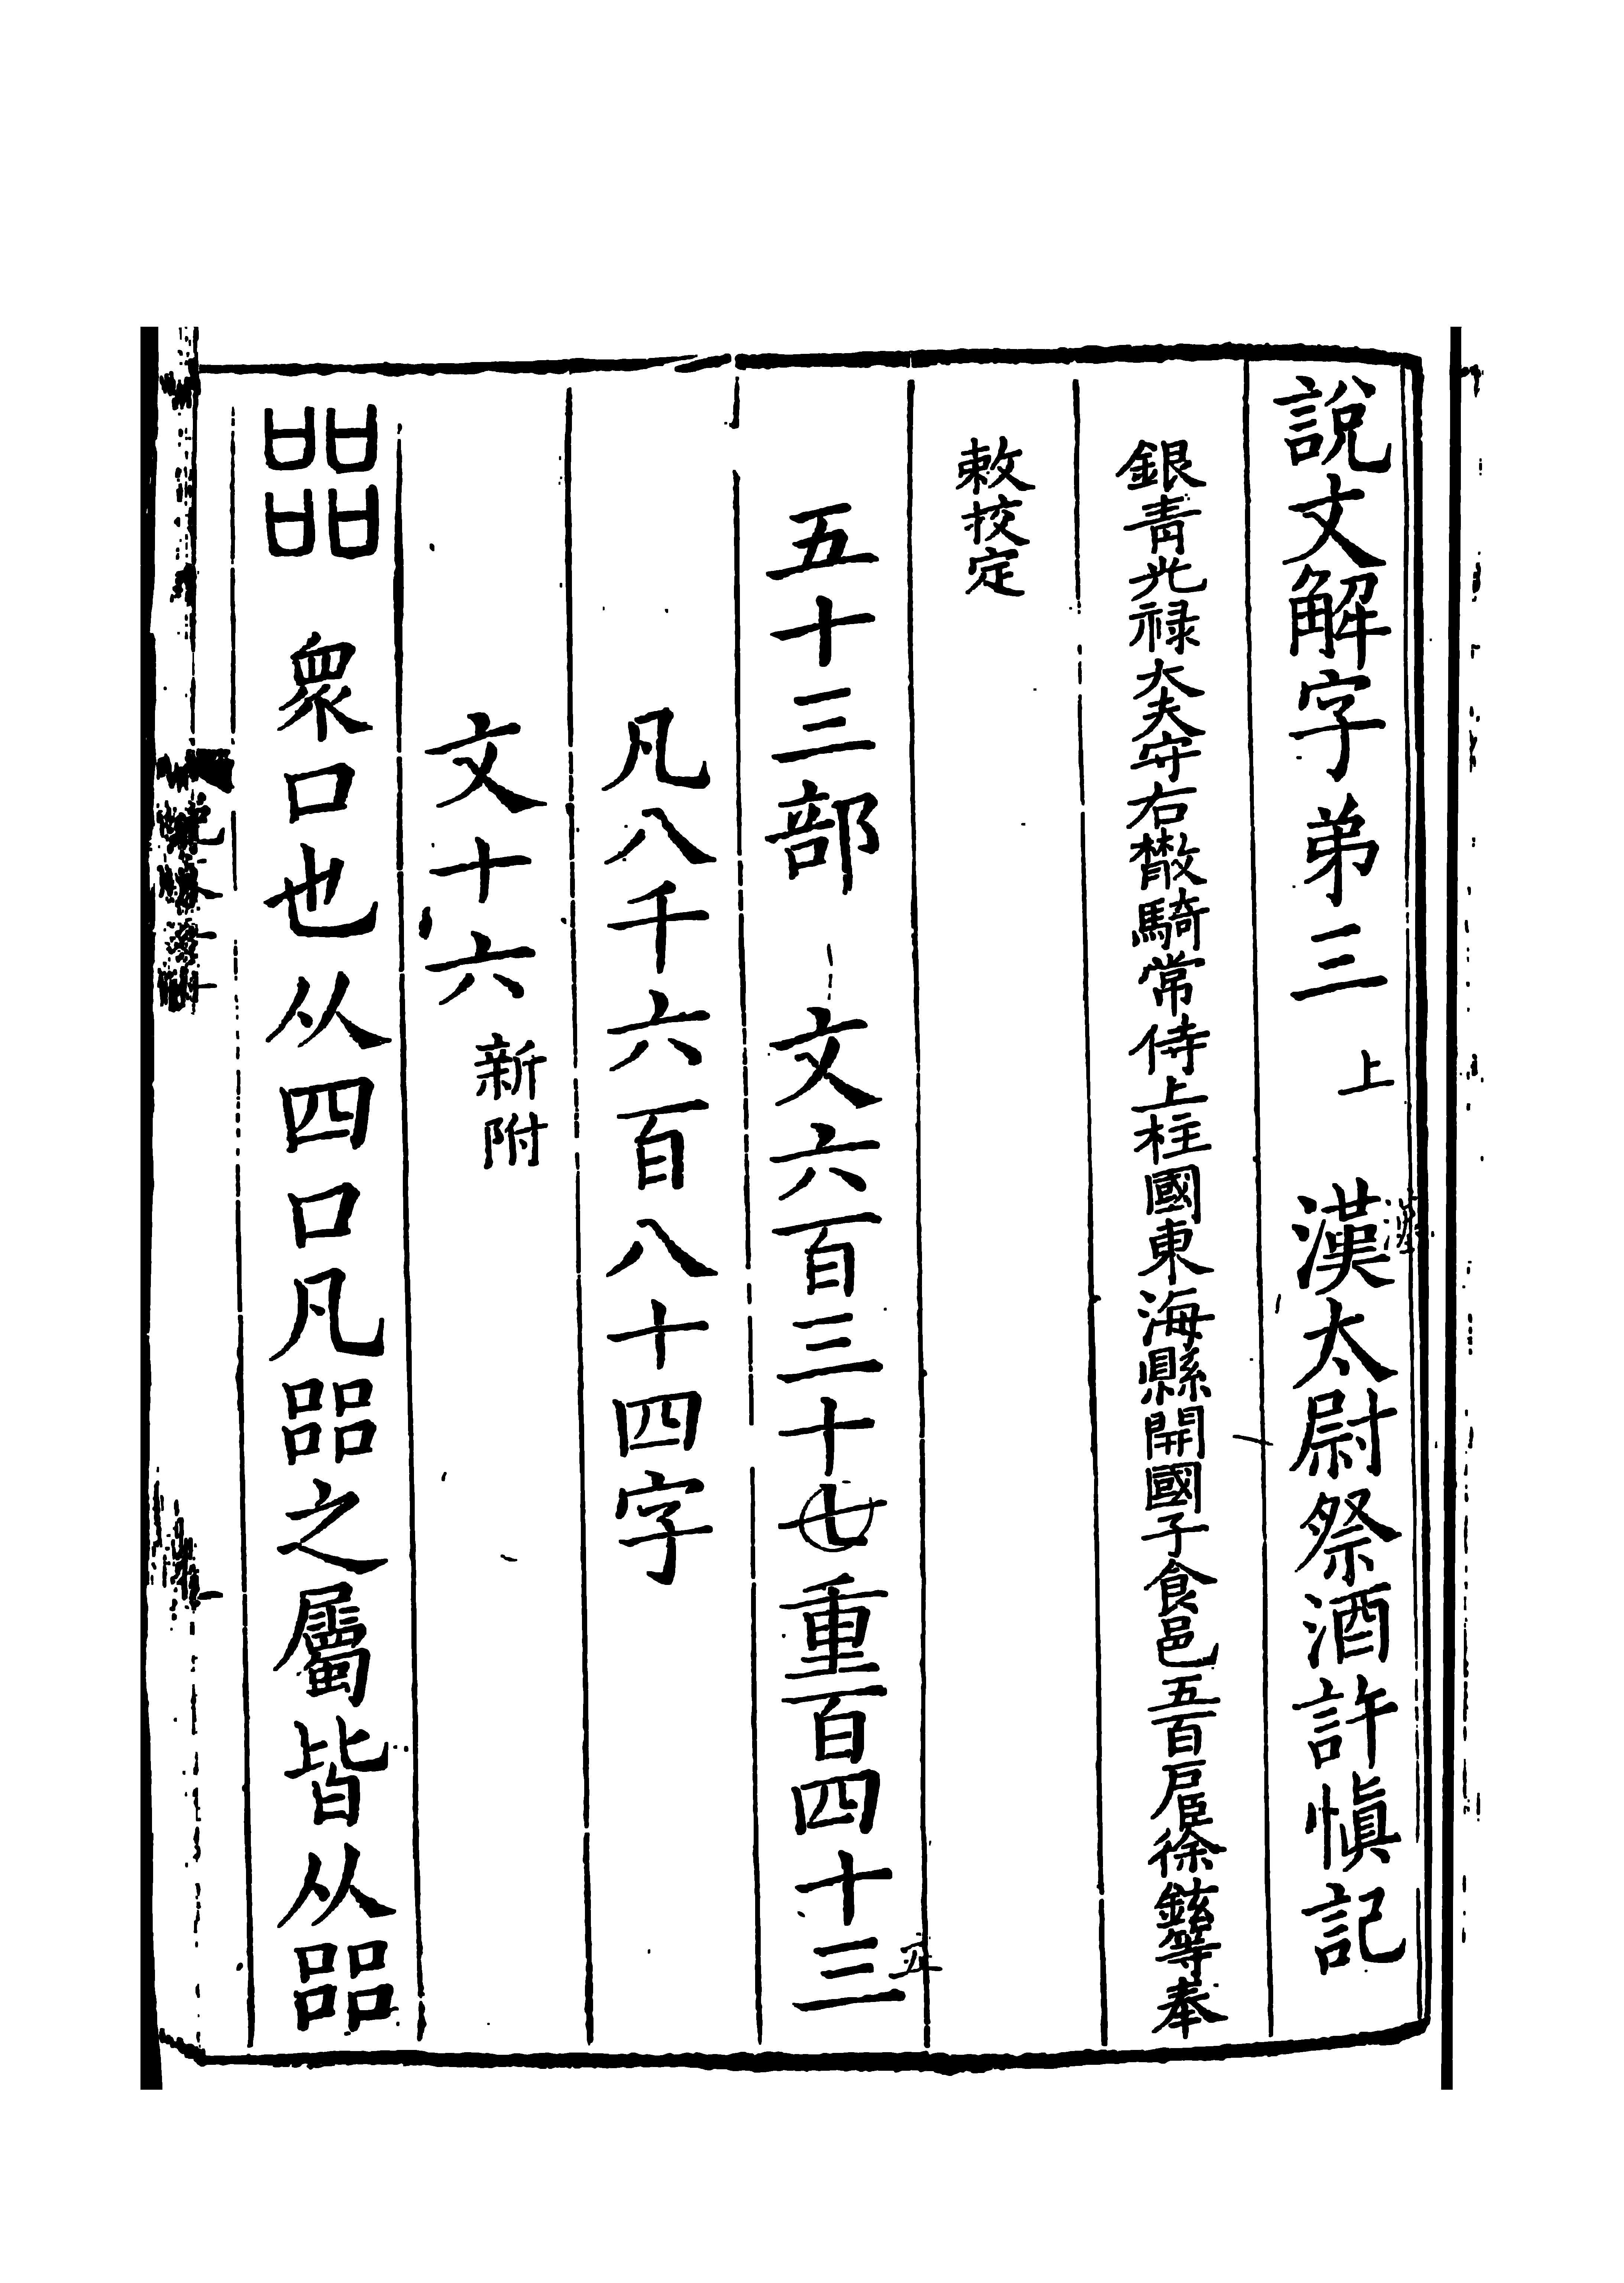 說文解字弟三上 漢太尉祭酒許愼記
銀青光禄大夫守右散騎常侍上柱國東海縣開國子食邑五百戶臣徐鉉等奉
敕挍定
五十三部 文六百三十七重百四十三
五
凡八千六百八十四字
文十六新附
㗊 衆口也从四口凡㗊之屬皆从㗊